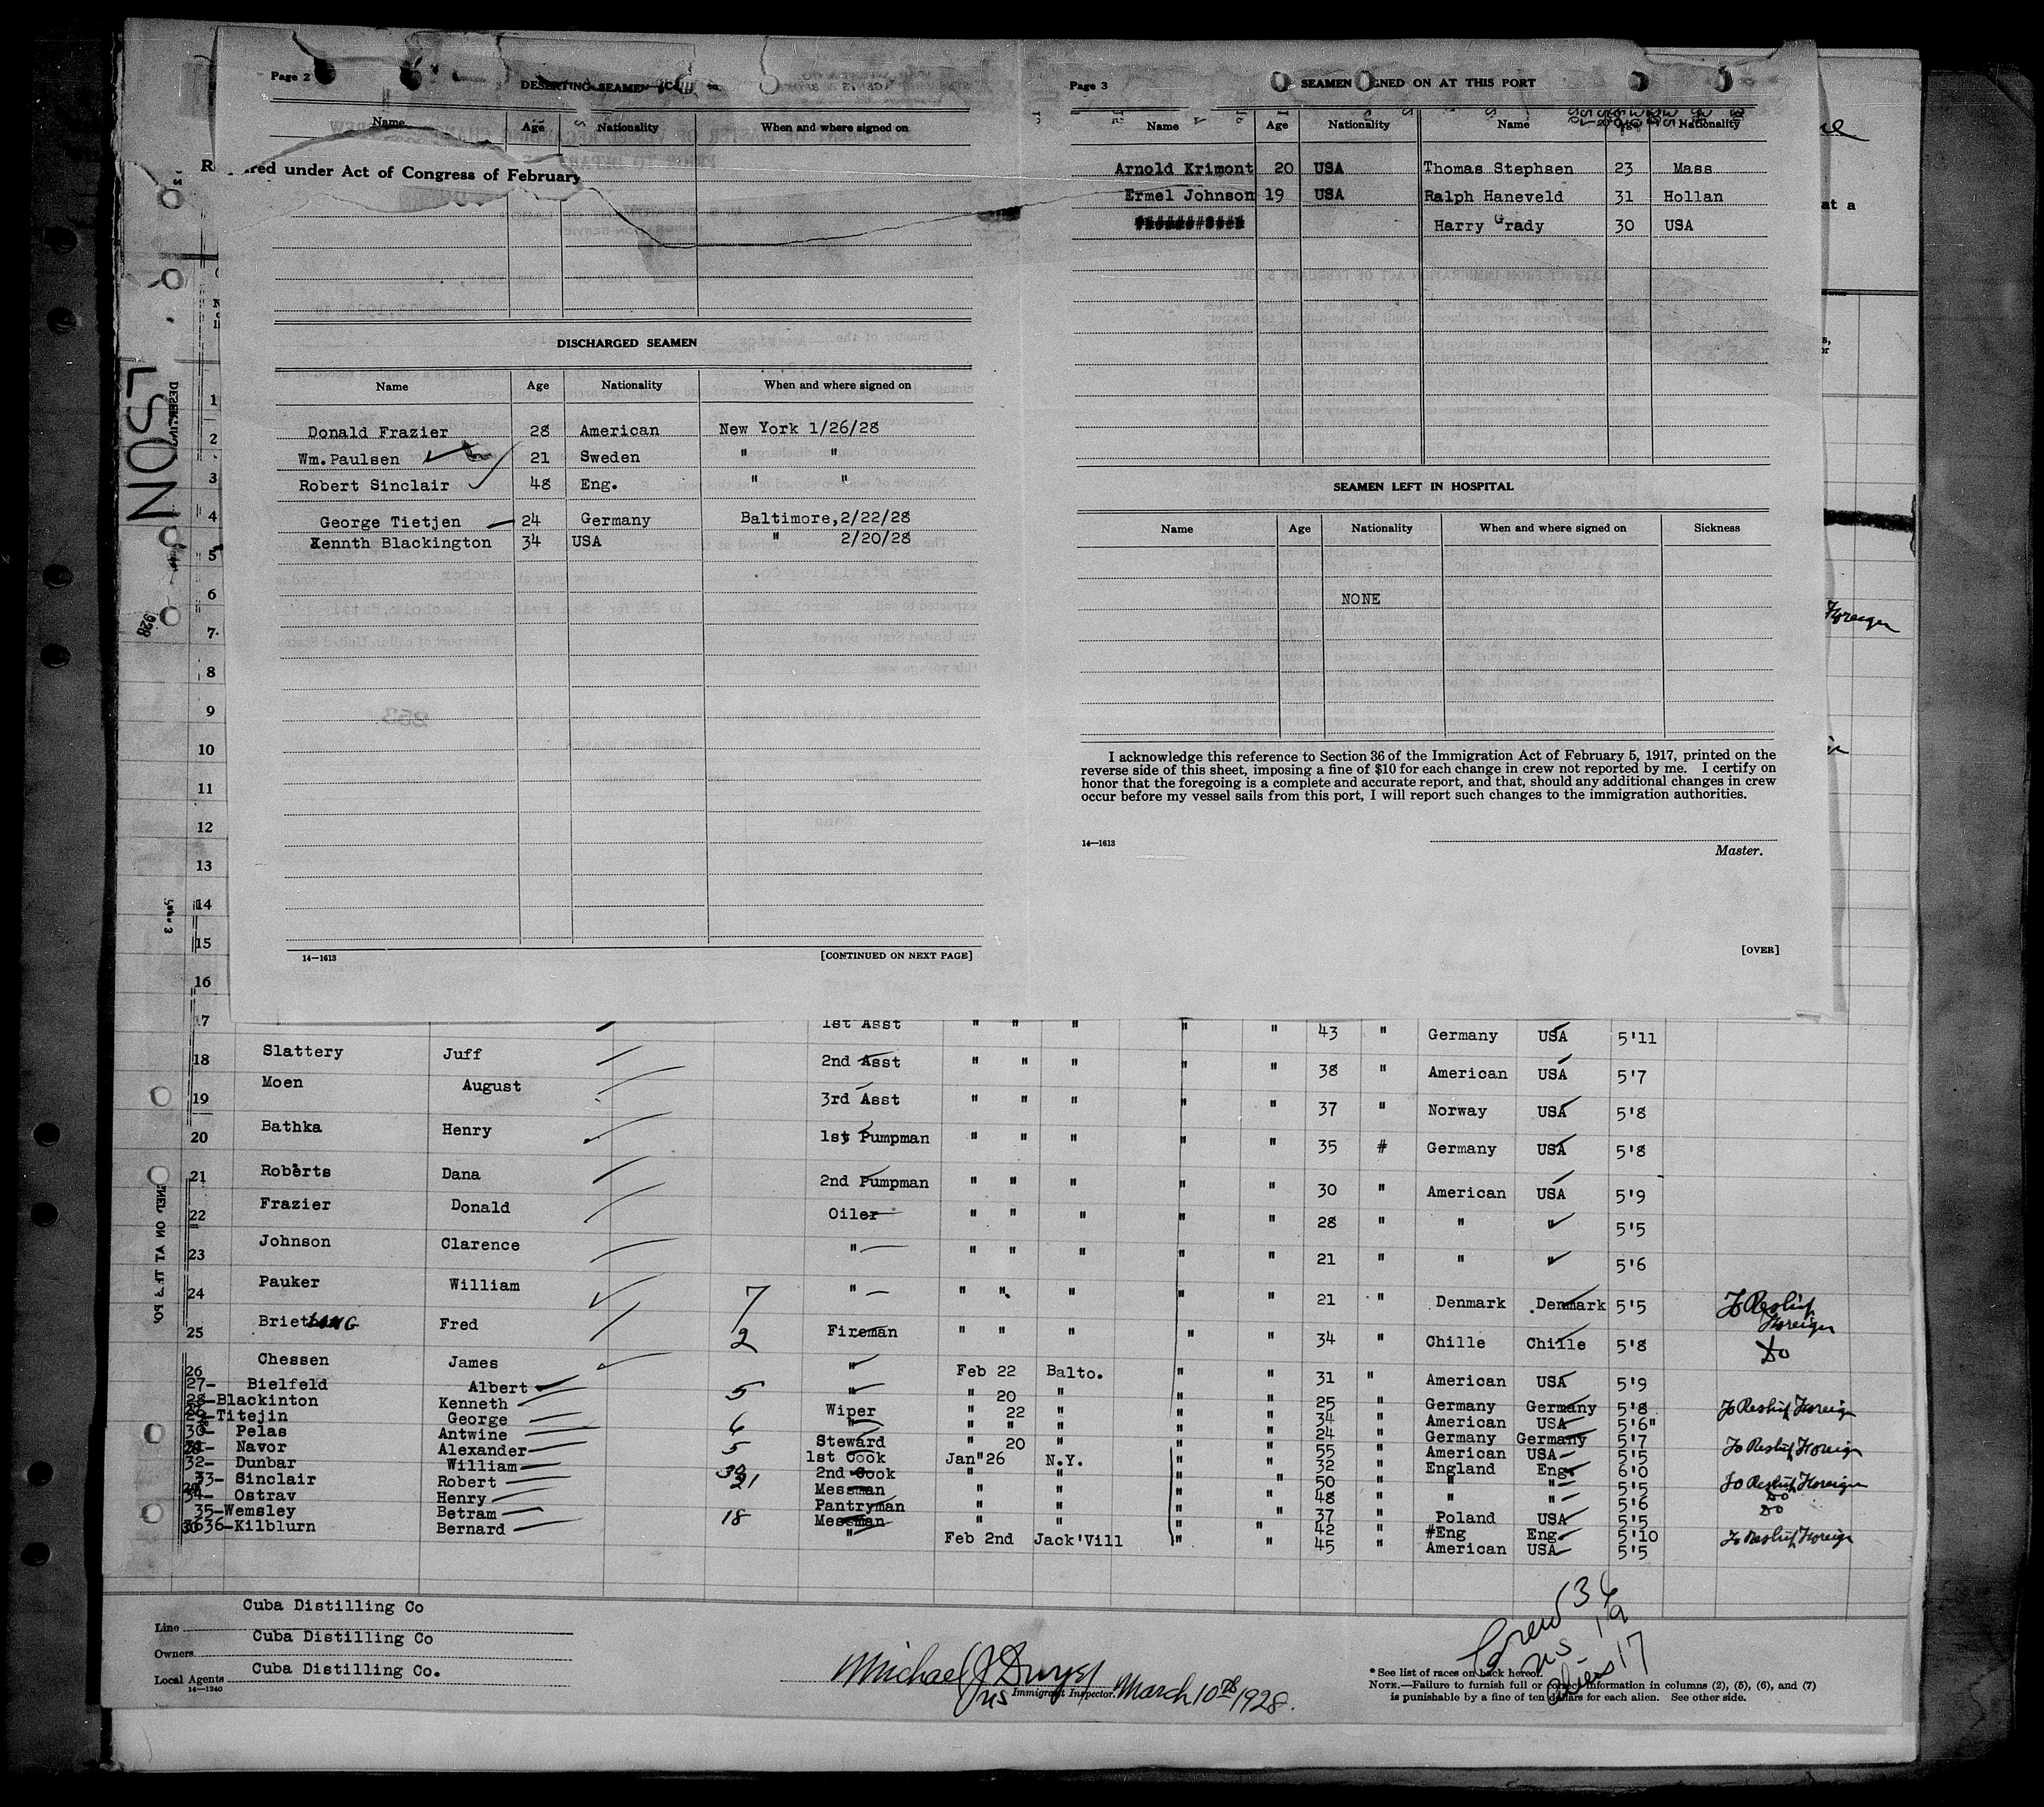 Page 2
DESERTING SEAMEN
Name Age Nationality When and where signed on
red under Act of Congress of February
DISCHARGED SEAMEN
Name Age Nationality When and where signed on
Donald Frazier 28 American New York 1/26/28
Wm.Paulsen 21 Sweden " "
Robert Sinclair 48 Eng. " "
George Tietjen 24 Germany Baltimore,2/22/28
Kennth Blackington 34 USA " 2/20/28
14—1613 [CONTINUED ON NEXT PAGE]
Page 3 SEAMEN SIGNED ON AT THIS PORT
Name Age Nationality Name Age Nationality
Arnold Krimont 20 USA Thomas Stephsen 23 Mass
Ermel Johnson 19 USA Ralph Haneveld 31 Hollan
Harry Grady 30 USA
SEAMEN LEFT IN HOSPITAL
Name Age Nationality When and where signed on Sickness
NONE
I acknowledge this reference to Section 36 of the Immigration Act of February 5, 1917, printed on the
reverse side of this sheet, imposing a fine of $10 for each change in crew not reported by me. I certify on
honor that the foregoing is a complete and accurate report, and that, should any additional changes in crew
occur before my vessel sails from this port, I will report such changes to the immigration authorities.
14—1613
Master.
[OVER]
LSON
at a
Foreign
1
2
3
4
5
6
7
8
9
10
11
12
13
14
15
16
17 1st Asst " " " " " 43 " Germany USA 5'11
18 Slattery Juff 2nd Asst " " " " " 38 " American USA 5'7
19 Moen August 3rd Asst " " " " " 37 " Norway USA 5'8
20 Bathka Henry 1st Pumpman " " " " " 35 # Germany USA 5'8
21 Roberts Dana 2nd Pumpman " " " " " 30 " American USA 5'9
22 Frazier Donald Oiler " " " " " 28 " " " 5'5
23 Johnson Clarence " " " " " " 21 " " " 5'6
24 Pauker William 7 " " " " " " 21 " Denmark Denmark 5'5 To Reship Foreign
25 Brietling Fred 2 Fireman " " " " " 34 " Chille Chille 5'8 Do
26 Chessen James " Feb 22 Balto. " " 31 " American USA 5'9
27- Bielfeld Albert 5 " " 20 " " " 25 " Germany Germany 5'8 To Reship Foreign
28-Blackinton Kenneth Wiper " 22 " " " 34 " American USA 5'6"
29-Titejin George 6 " " " " " " 24 " Germany Germany 5'7 To Reship Foreign
30- Pelas Antwine Steward " 20 " " " 55 " American USA 5'5
31- Navor Alexander 5 1st Cook Jan"26 N.Y. " " 32 " England Eng. 6'0 To Reship Foreign
32- Dunbar William 2nd Cook " " " " 50 " " " 5'5 Do
33- Sinclair Robert 21 Messman " " " " 48 " " " 5'6 Do
34- Ostrav Henry Pantryman " " " " 37 " Poland USA 5'5
35-Wemsley Betram 18 Messman " " " " 42 " #Eng Eng. 5'10 To Reship Foreign
36-Kilblurn Bernard " Feb 2nd Jack'Vill " " 45 " American USA 5'5
Line Cuba Distilling Co
Owners Cuba Distilling Co
Local Agents Cuba Distilling Co.
14—1240
Michael J Dwyer
US Immigrant Inspector. March 10th 1928.
Crew 36
US 19
Aliens 17
* See list of races on back hereof.
NOTE.—Failure to furnish full or correct information in columns (2), (5), (6), and (7)
is punishable by a fine of ten dollars for each alien. See other side.